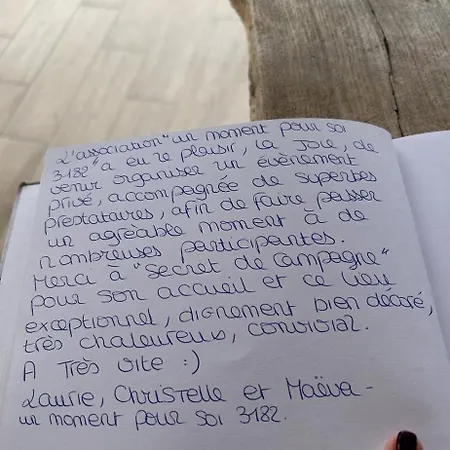 L'association "un moment pour soi
3182" a eu le plaisir, la joie, de
venir organiser un évènement
privé, accompagnée de superbes
prestataires, afin de faire passer
un agréable moment à de
nombreuses participantes.
Merci à "Secret de Campagne"
pour son accueil et ce lieu
exceptionnel, dignement bien décoré,
très chaleureux, convivial.
A Très vite :)
Laurie, Christelle et Maëva -
un moment pour soi 3182.